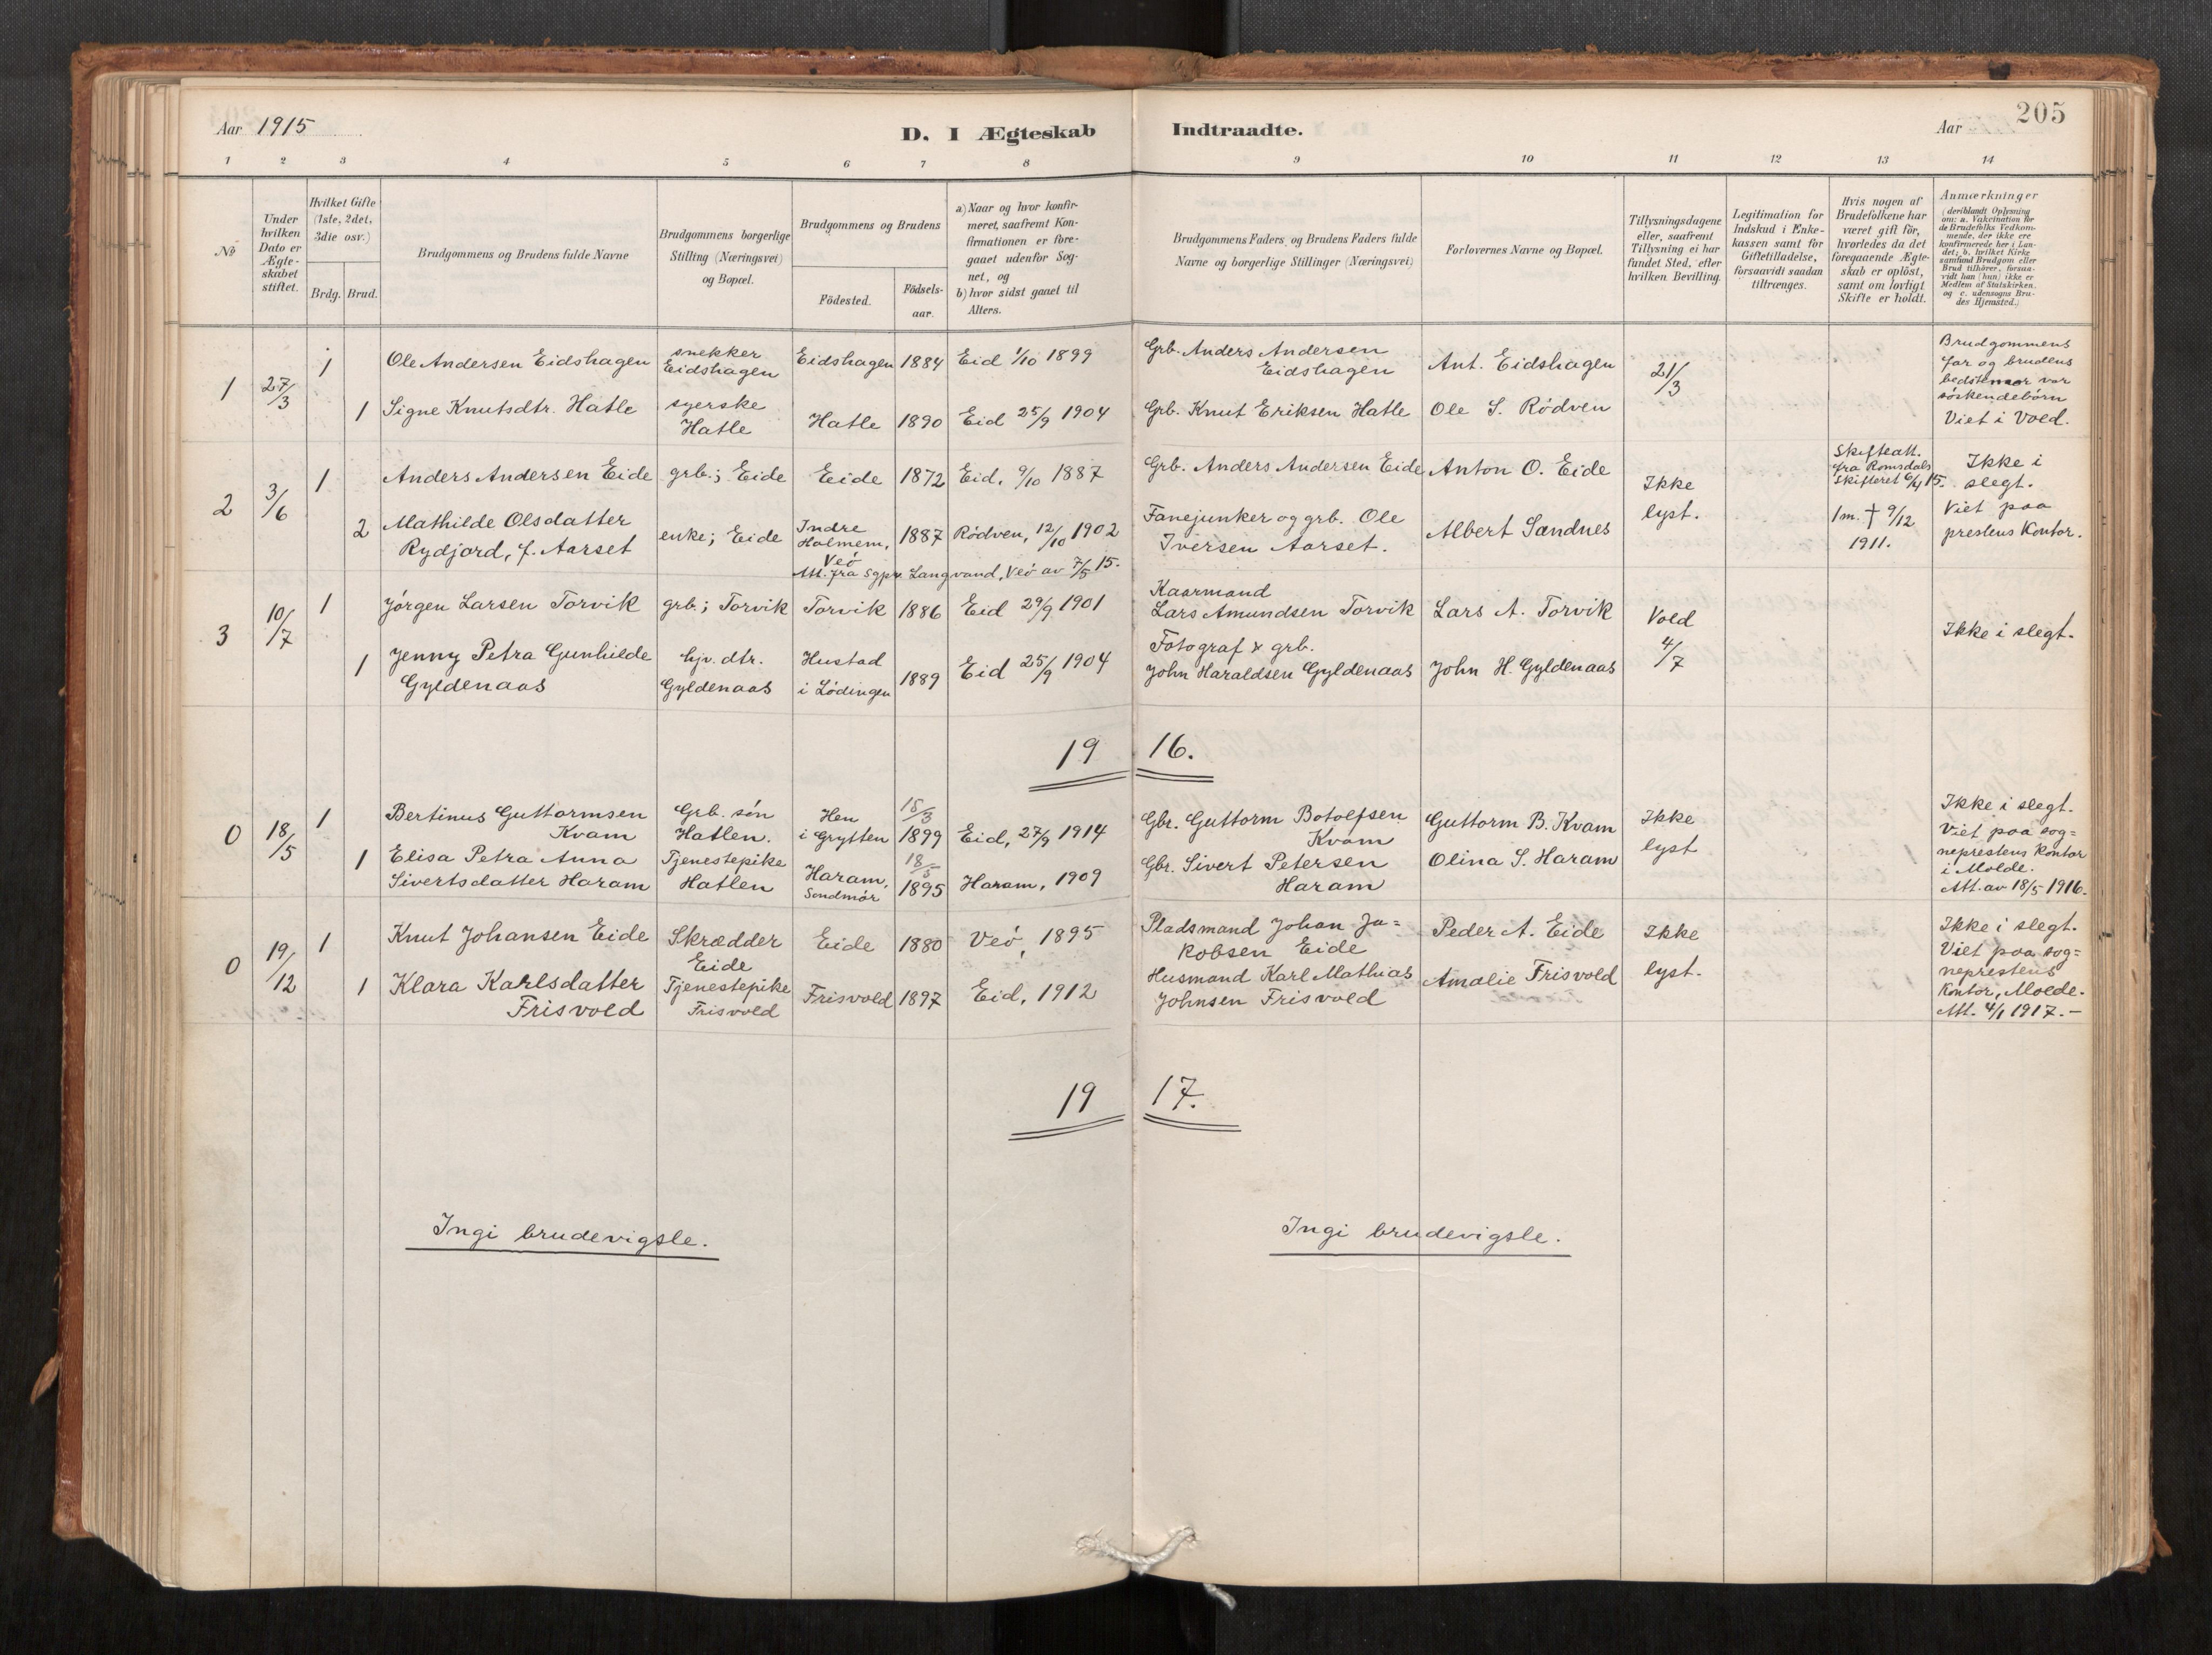 Aar 1915
D. I Ægteskab Indtraadte.
Aar
205
1 2 3 4 5 6 7 8 9 10 11 12 13 14
No
Under hvilken Dato er Ægte-skabet stiftet.
Hvilket Gifte (1ste, 2det, 3die osv.)
Brdg. Brud.
Brudgommens og Brudens fulde Navne
Brudgommens borgerlige Stilling (Næringsvei) og Bopæl.
Brudgommens og Brudens
Födested.
Födsels-aar.
a) Naar og hvor konfir-meret, saafremt Kon-firmationen er fore-gaaet udenfor Sog-net, og
b) hvor sidst gaaet til Alters.
Brudgommens Faders, og Brudens Faders fulde Navne og borgerlige Stillinger (Næringsvei)
Forlovernes Navne og Bopæl.
Tillysningsdagene eller, saafremt Tillysning ei har fundet Sted, efter hvilken Bevilling.
Legitimation for Indskud i Enke-kassen samt for Giftetilladelse, forsaavidt saadan tiltrænges.
Hvis nogen af Brudefolkene har været gift för, hvorledes da det foregaaende Ægte-skab er oplöst, samt om lovligt Skifte er holdt.
Anmærkninger
(deriblandt Oplysning om: a. Vakcination for de Brudefolks Vedkom-mende, der ikke ere konfirmerede her i Lan-det; b. hvilket Kirke samfund Brudgom eller Brud tilhörer, forsaa-vidt han (hun) ikke er Medlem af Statskirken. og c. udensogns Bru-des Hjemsted.)
1 27/3 1 Ole Andersen Eidshagen snekker Eidshagen Eidshagen 1884 Eid 1/10 1899 Grb. Anders Andersen Eidshagen Ant. Eidshagen 21/3 Brudgommens far og brudens bedstemor var söskendebörn Viet i Vold.
1 Signe Knutsdtr. Hatle syerske Hatle Hatle 1890 Eid 25/9 1904 Grb. Knut Eriksen Hatle Ole S. Rødven
2 3/6 1 Anders Andersen Eide grb.; Eide Eide 1872 Eid. 9/10 1887 Grb. Anders Andersen Eide Anton O. Eide Ikke lyst. Skifteatt. fra Romsdals Skifteret 6/4 15. Ikke i slegt. Viet paa prestens Kontor.
2 Mathilde Olsdatter Rydjord, f. Aarset enke; Eide Indre Holmem, Veö 1887 Rødven, 12/10 1902 Fanejunker og grb. Ole Iversen Aarset. Albert Sandnes 1 m. † 9/12 1911.
Att. fra sgpr. Langvand, Veö av 7/5 15.
3 10/7 1 Jörgen Larsen Torvik grb.; Torvik Torvik 1886 Eid 29/9 1901 Kaarmand Lars Amundsen Torvik Lars A. Torvik Vold 4/7 Ikke i slegt.
1 Jenny Petra Gunhilde Gyldenaas hjv. dtr. Gyldenaas Hustad i Lödingen 1889 Eid 25/9 1904 Fotograf & grb. John Haraldsen Gyldenaas John H. Gyldenaas
1916.
0 18/5 1 Bertinus Guttormsen Kvam Grb. sön Hatlen. Hen i Grytten 18/3 1899 Eid, 27/9 1914 Gbr. Guttorm Botolfsen Kvam Guttorm B. Kvam Ikke lyst Ikke i slegt. Viet paa sog=neprestens kontor i Molde. Att. av 18/5 1916.
1 Elisa Petra Anna Sivertsdatter Haram Tjenestepike Hatlen Haram, Söndmör 18/5 1895 Haram, 1909 Gbr. Sivert Petersen Haram Olina S. Haram
0 19/12 1 Knut Johansen Eide Skrædder Eide Eide 1880 Veö, 1895 Pladsmand Johan Ja=kobsen Eide Peder A. Eide Ikke lyst. Ikke i slegt. Viet paa sog=neprestens Kontor, Molde. Att. 4/1 1917.—
1 Klara Karlsdatter Frisvold Tjenestepike Frisvold Frisvold 1897 Eid, 1912 Husmand Karl Mathias Johnsen Frisvold Amalie Frisvold
1917.
Ingi brudevigsle. Ingi brudevigsle.